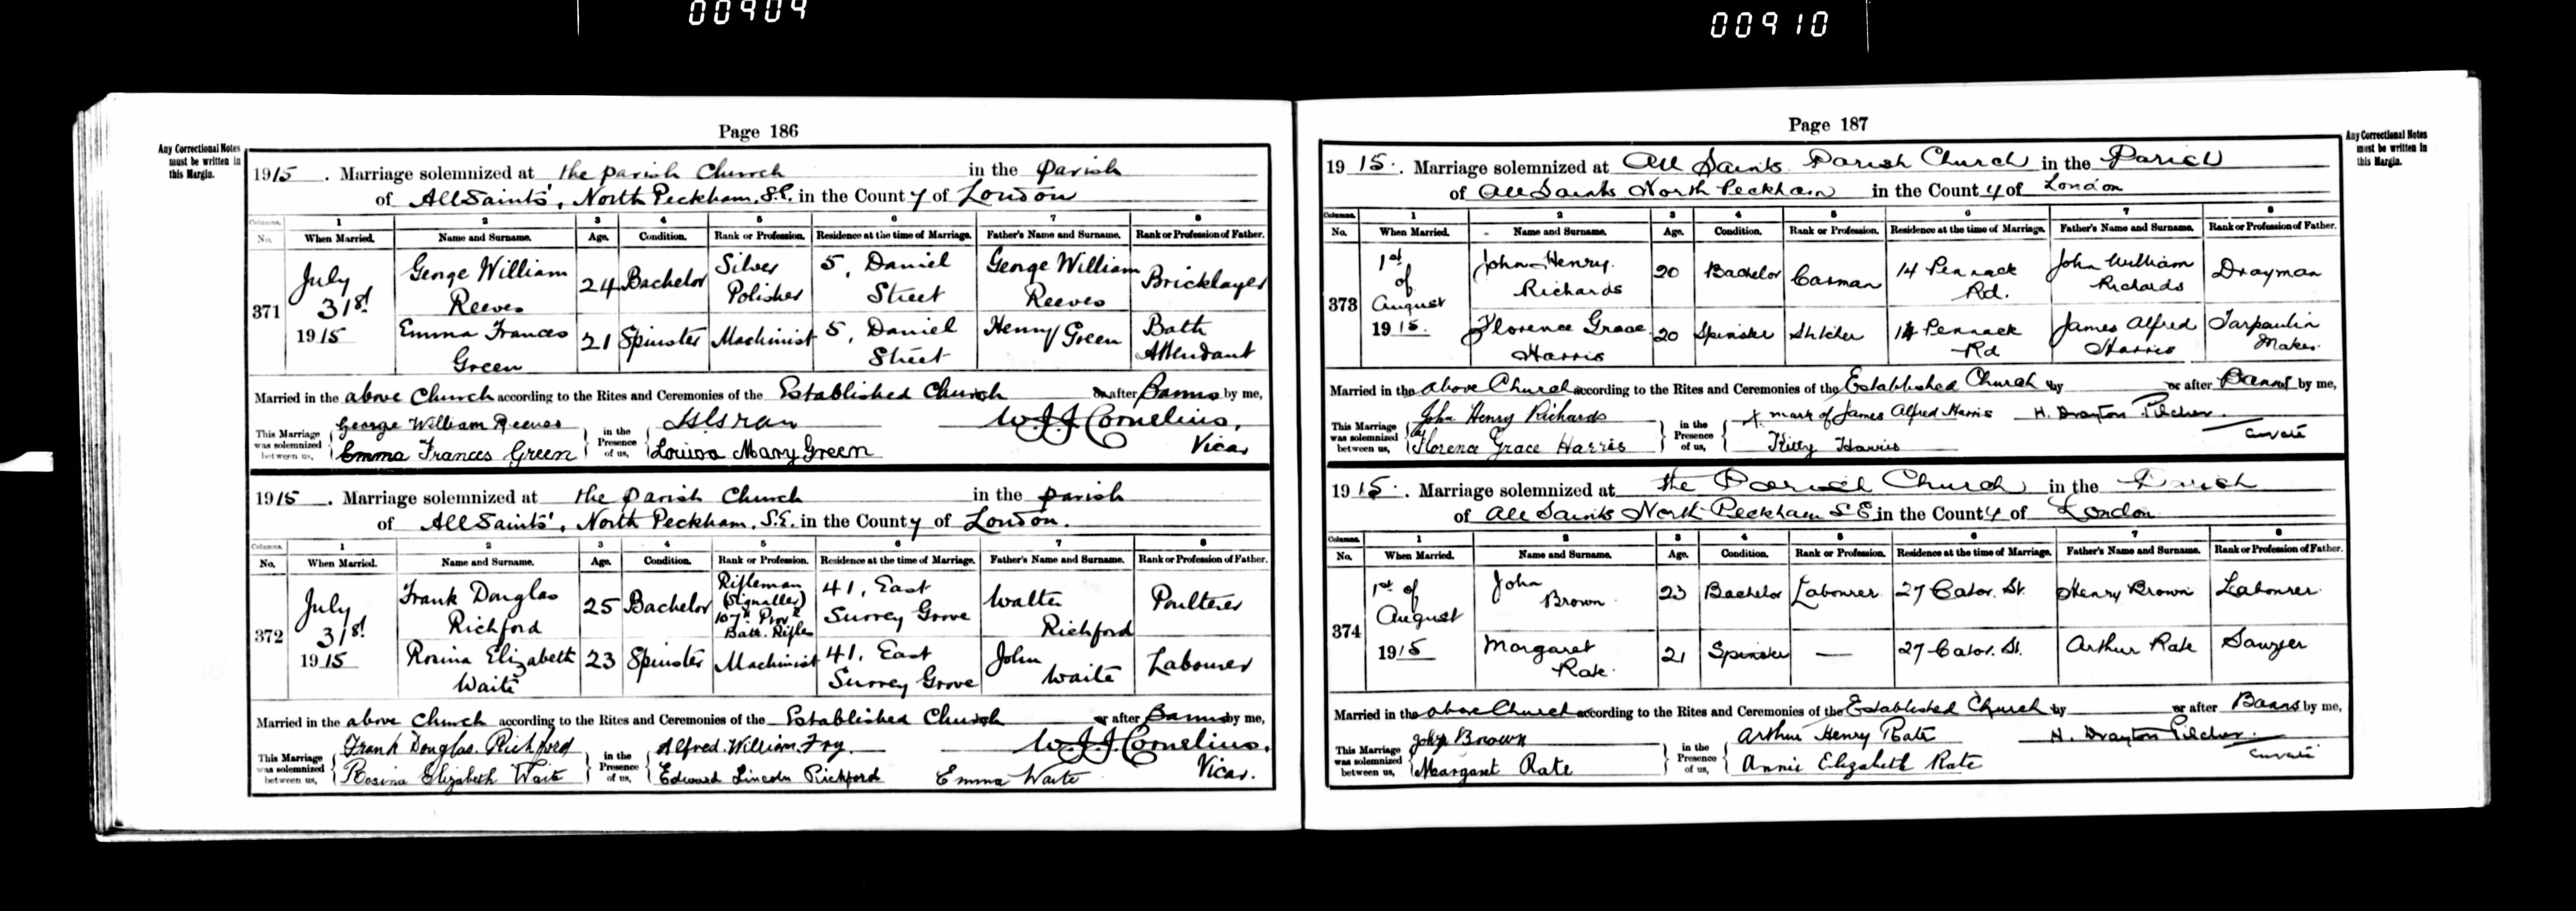 00909
00910
Page 186
Any Correctional Notes
must be written in
this Margin.
1915. Marriage solemnized at the parish Church in the Parish
of All Saints', North Peckham, S.E. in the County of London
Columns. 1 2 3 4 5 6 7 8
No. When Married. Name and Surname. Age. Condition. Rank or Profession. Residence at the time of Marriage. Father's Name and Surname. Rank or Profession of Father.
371 July 31st 1915 George William Reeves 24 Bachelor Silver Polisher 5, Daniel Street George William Reeves Bricklayer
Emma Frances Green 21 Spinster Machinist 5, Daniel Street Henry Green Bath Attendant
Married in the above Church according to the Rites and Ceremonies of the Established Church or after Banns by me,
This Marriage was solemnized between us, George William Reeves in the Presence of us, W.J.J. Cornelius,
Emma Frances Green Louisa Mary Green Vicar
1915. Marriage solemnized at the Parish Church in the parish
of All Saints', North Peckham, S.E. in the County of London.
Columns. 1 2 3 4 5 6 7 8
No. When Married. Name and Surname. Age. Condition. Rank or Profession. Residence at the time of Marriage. Father's Name and Surname. Rank or Profession of Father.
372 July 31st 1915 Frank Douglas Richford 25 Bachelor Rifleman (Signaller) 107th Provl Batt. Rifles 41, East Surrey Grove Walter Richford Poulterer
Rosina Elizabeth Waite 23 Spinster Machinist 41, East Surrey Grove John Waite Labourer
Married in the above Church according to the Rites and Ceremonies of the Established Church or after Banns by me,
This Marriage was solemnized between us, Frank Douglas Richford in the Presence of us, Alfred William Fry. W.J.J. Cornelius,
Rosina Elizabeth Waite Edward Lincoln Richford Emma Waite Vicar.
Page 187
Any Correctional Notes
must be written in
this Margin.
1915. Marriage solemnized at All Saints Parish Church in the Parish
of All Saints North Peckham in the County of London
Columns. 1 2 3 4 5 6 7 8
No. When Married. Name and Surname. Age. Condition. Rank or Profession. Residence at the time of Marriage. Father's Name and Surname. Rank or Profession of Father.
373 1st of August 1915. John Henry Richards 20 Bachelor Carman 14 Pennack Rd. John William Richards Drayman
Florence Grace Harris 20 Spinster Stitcher 14 Pennack Rd James Alfred Harris Tarpaulin Maker.
Married in the above Church according to the Rites and Ceremonies of the Established Church by or after Banns by me,
This Marriage was solemnized between us, John Henry Richards in the Presence of us, X mark of James Alfred Harris H. Drayton Pilcher.
Florence Grace Harris Kitty Harris Curate
1915. Marriage solemnized at the Parish Church in the Parish
of All Saints North Peckham S E in the County of London
Columns. 1 2 3 4 5 6 7 8
No. When Married. Name and Surname. Age. Condition. Rank or Profession. Residence at the time of Marriage. Father's Name and Surname. Rank or Profession of Father.
374 1st of August 1915 John Brown 23 Bachelor Labourer 27 Cator. St. Henry Brown Labourer.
Margaret Rate. 21 Spinster — 27 Cator. St. Arthur Rate Sawyer
Married in the above Church according to the Rites and Ceremonies of the Established Church by or after Banns by me,
This Marriage was solemnized between us, John Brown in the Presence of us, Arthur Henry Rate H. Drayton Pilcher.
Margaret Rate Annie Elizabeth Rate Curate